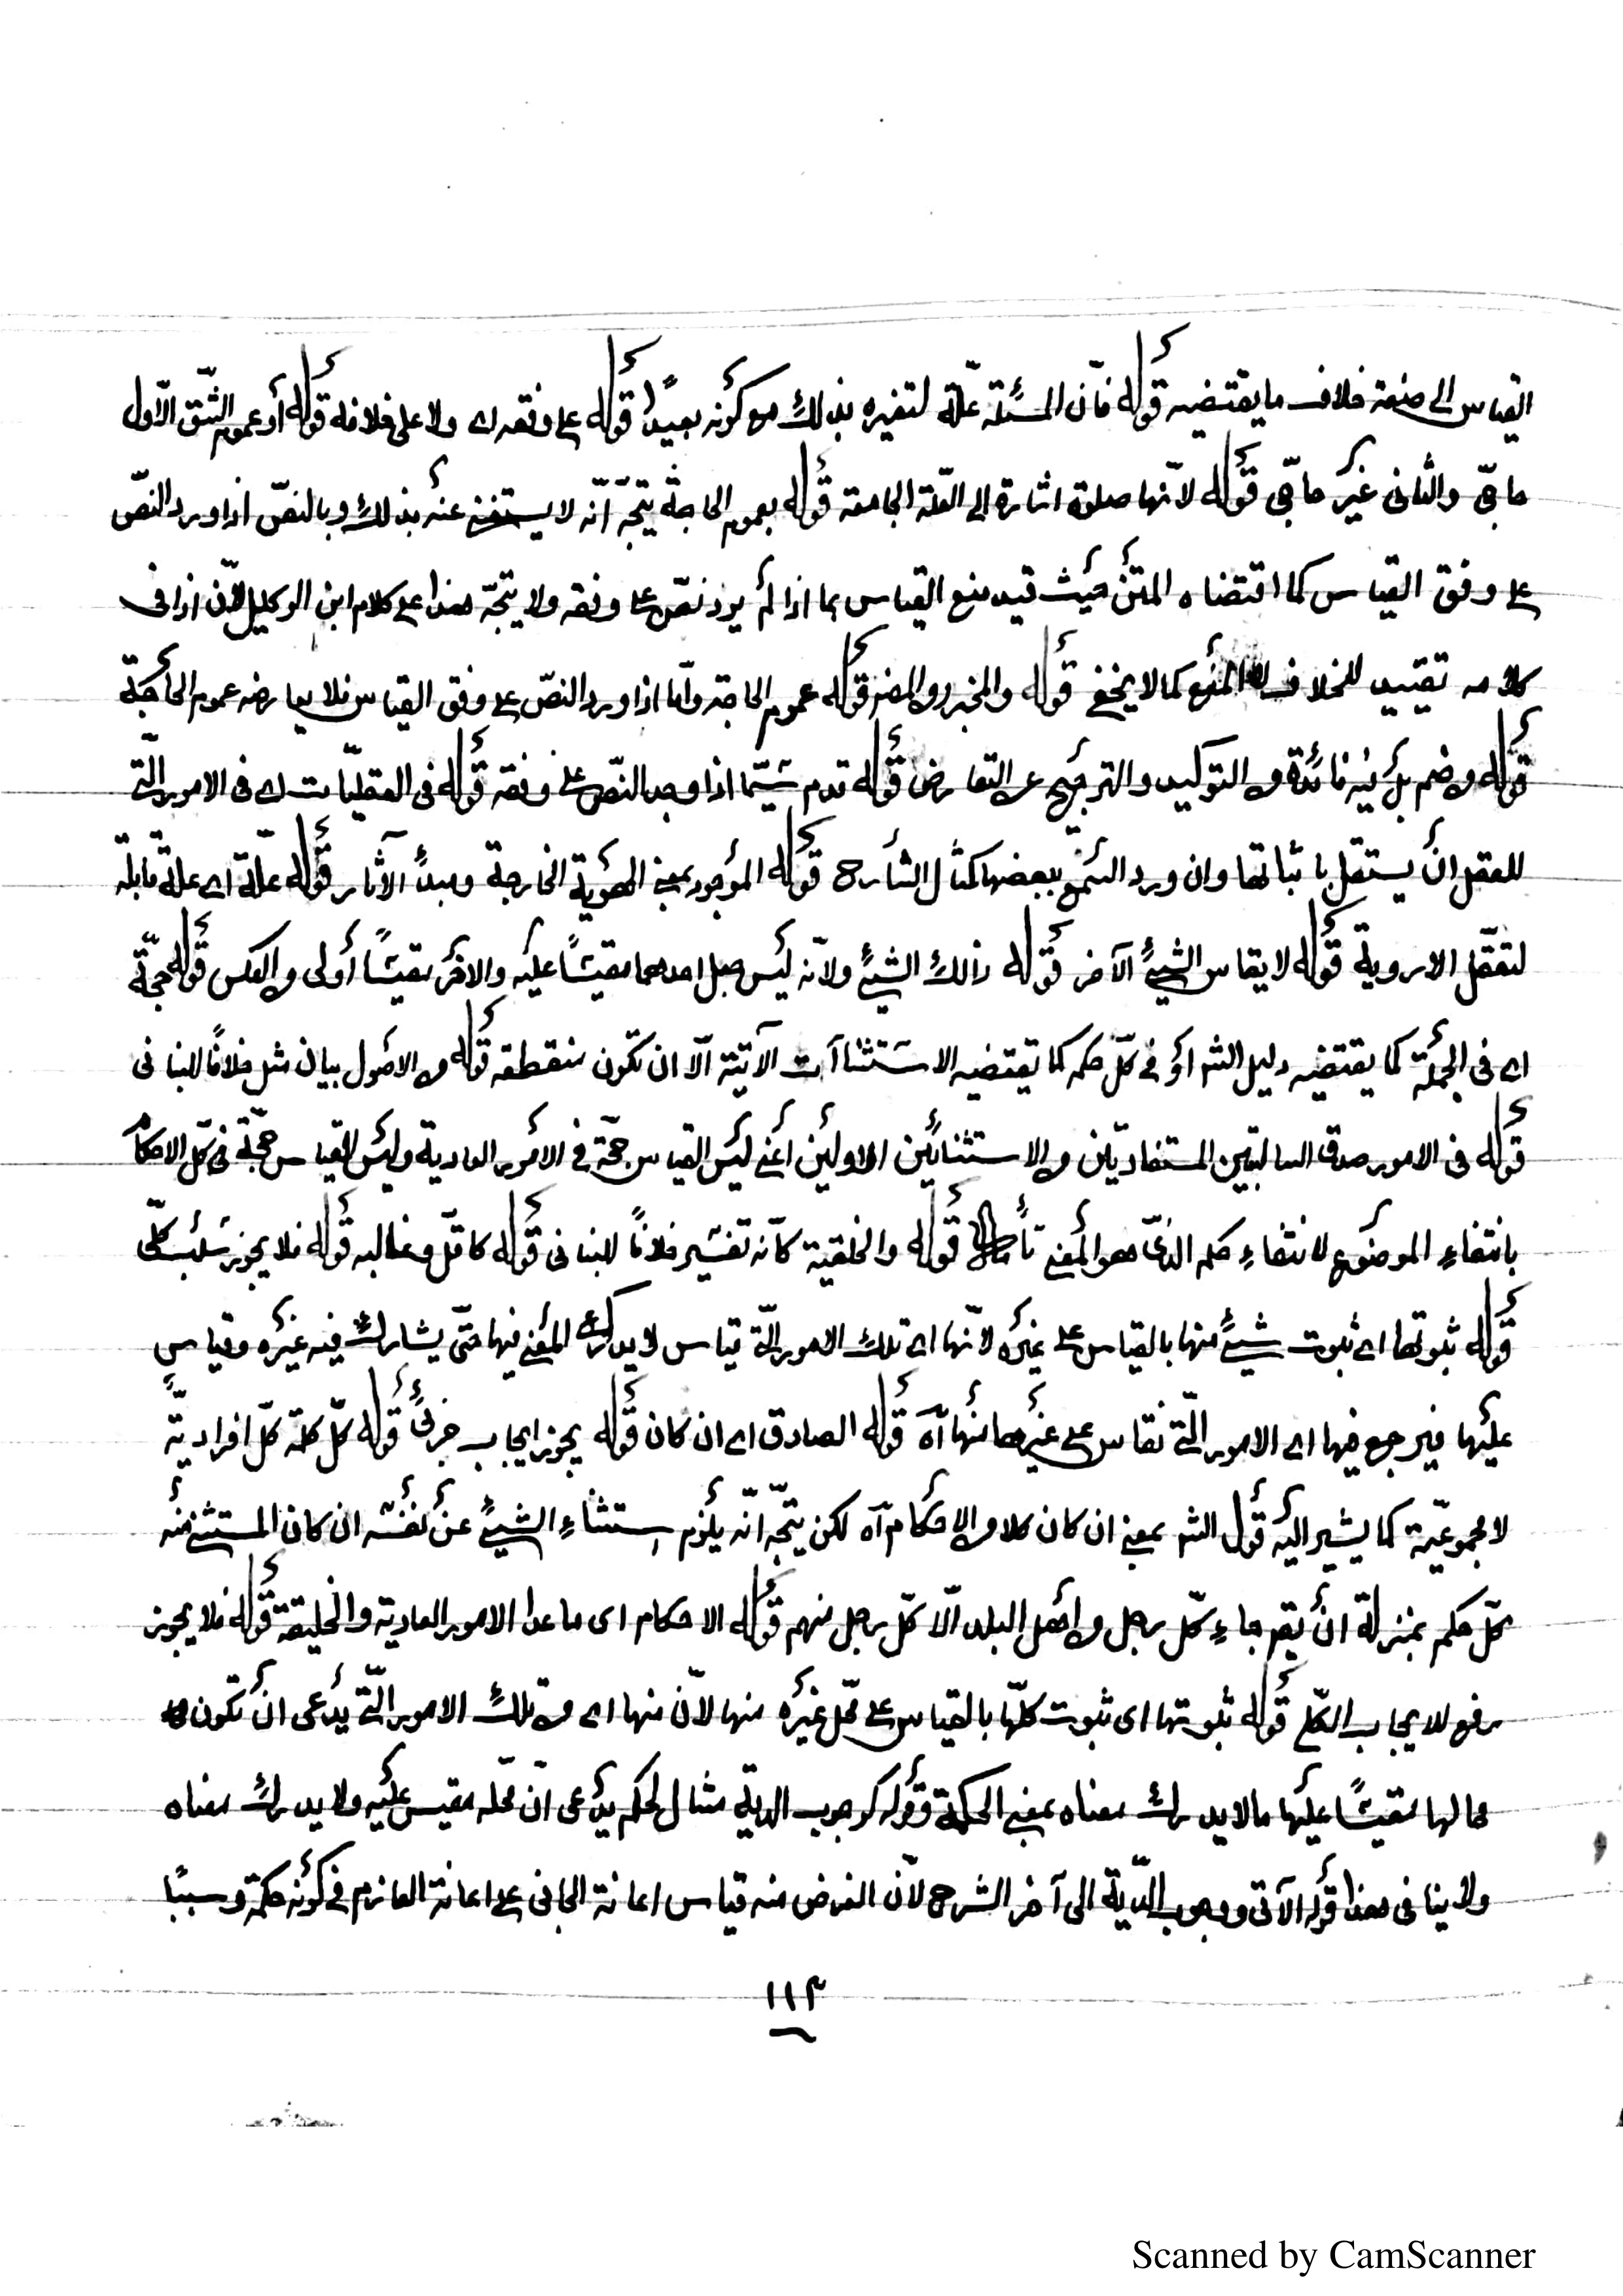 القياس الى صنعة خلاف ما يقتضيه قوله فان المسئلة علة لتغيره بذلك مع كونه بعيدًا قوله على وفقه اى ولا على خلافه قوله أو عموم الشق الاول
حاجى والثانى غير حاجى قوله لانها صلوة اشارة الى العلة الجامعة قوله بعموم الحاجة يتجه انه لا يستغنى عنه بذلك وبالنص اذا ورد النص
على وفق القياس كما اقتضاه المتن حيث قيد منع القياس بما اذا لم يرد نص على وفقه ولا يتجه هذا على كلام ابن الوكيل لان اذا فى
كلامه تقييد للخلاف لا المنع كما لا يخفى قوله والمخبر والمضر قوله عموم الحاجة وأما اذا ورد النص على وفق القياس فلا يعارضه عموم الحاجة
قوله وضم بل فيه فائدة و التوكيد والترجيح عن التعارض قوله قدم سيّما اذا وجد النص على وفقه قوله فى العقليات اى فى الامور التى
للعقل ان يستقل باثباتها وان ورد السمع ببعضها كمثال الشارح قوله الموجود بمعنى الهوية الخارجة ومبدأ الآثار قوله علة اى علة قابلة
لتعقل الاروية قوله لا يقاس الشيئ الآخر قوله ذالك الشيئ ولانه ليس جعل احدهما مقيسًا عليه والاخر مقيسًا أولى و العكس قوله حجة
اى فى الجملة كما يقتضيه دليل الشم أو فى كل حكم كما تقتضيه الاستثناآت الآتية الا ان تكون منقطعة قوله و الاصول بيان مثل خلافًا للبنانى
قوله فى الامور صدق السالبتين المستفادتين و الاستثنائين الاولين أعنى ليس القياس حجة فى الأمور العادية وليس القياس حجة فى كل الاحكام
بانتفاء الموضوع لانتفاء حكم الذى هو المعنى تأمل قوله والخلقية كأنه تفسير خلافًا للبنانى قوله كاقل وغالبه قوله فلا يجوز سلب كلى
قوله ثبوتها اى ثبوت شيئ منها بالقياس على غيره لانها اى تلك الامور التى تقاس لا يدرك المعنى فيها حتى يشارك فيه غيره وقياس
عليها فيرجع فيها اى الامور التى تقاس على غيرها منها آه قوله الصادق اى ان كان قوله يجوز ايجاب جزئى قوله كل كلة كل افرادية
لا مجموعية كما يشير اليه قول الشم بمعنى ان كان كلا و الاحكام آه لكن يتجه انه يلزم استثناء الشيئ عن نفسه ان كان المستثنى منه
كل حكم بمنزلة ان يقم جاء كل رجل و اهل البلد الا كل رجل منهم قوله الاحكام اى ما عدا الامور العادية والخليقة قوله فلا يجوز
رفع للايجاب الكلى قوله ثبوتها اى ثبوت كلها بالقياس على محل غيره منها لان منها اى و تلك الامور التى يدعى ان تكون
محالها مقيسًا عليها مالا يدرك معناه بمعنى الحكمة وقوله كوجوب الدية مثال لحكم يدعى ان محله مقيس عليه ولا يدرك معناه
ولا ينافى هذا قوله الآتى ووجوب الدية الى آخر الشرح لان الغرض منه قياس اعانة الجانى على اعانة الغارم فى كونه حكمة وسببًا
١١٣
Scanned by CamScanner